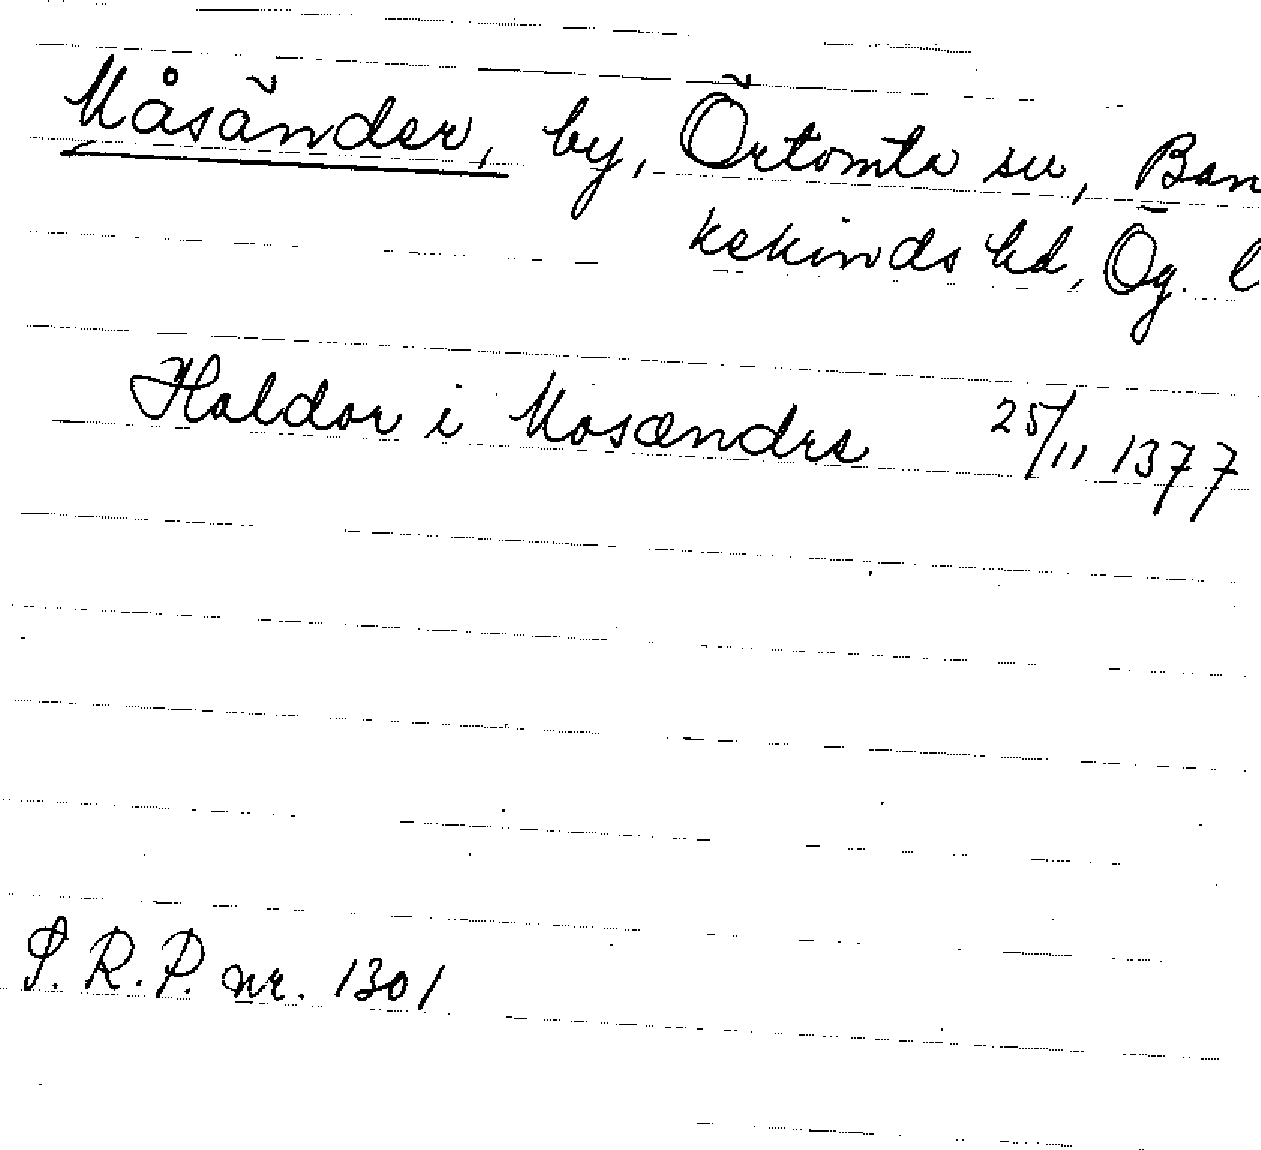 Måsänder, by, Örtomta sn, Ban
kekinds hd, Ög. l
Haldor i Mosændrs 25/11 1377
S. R. P. nr. 1301